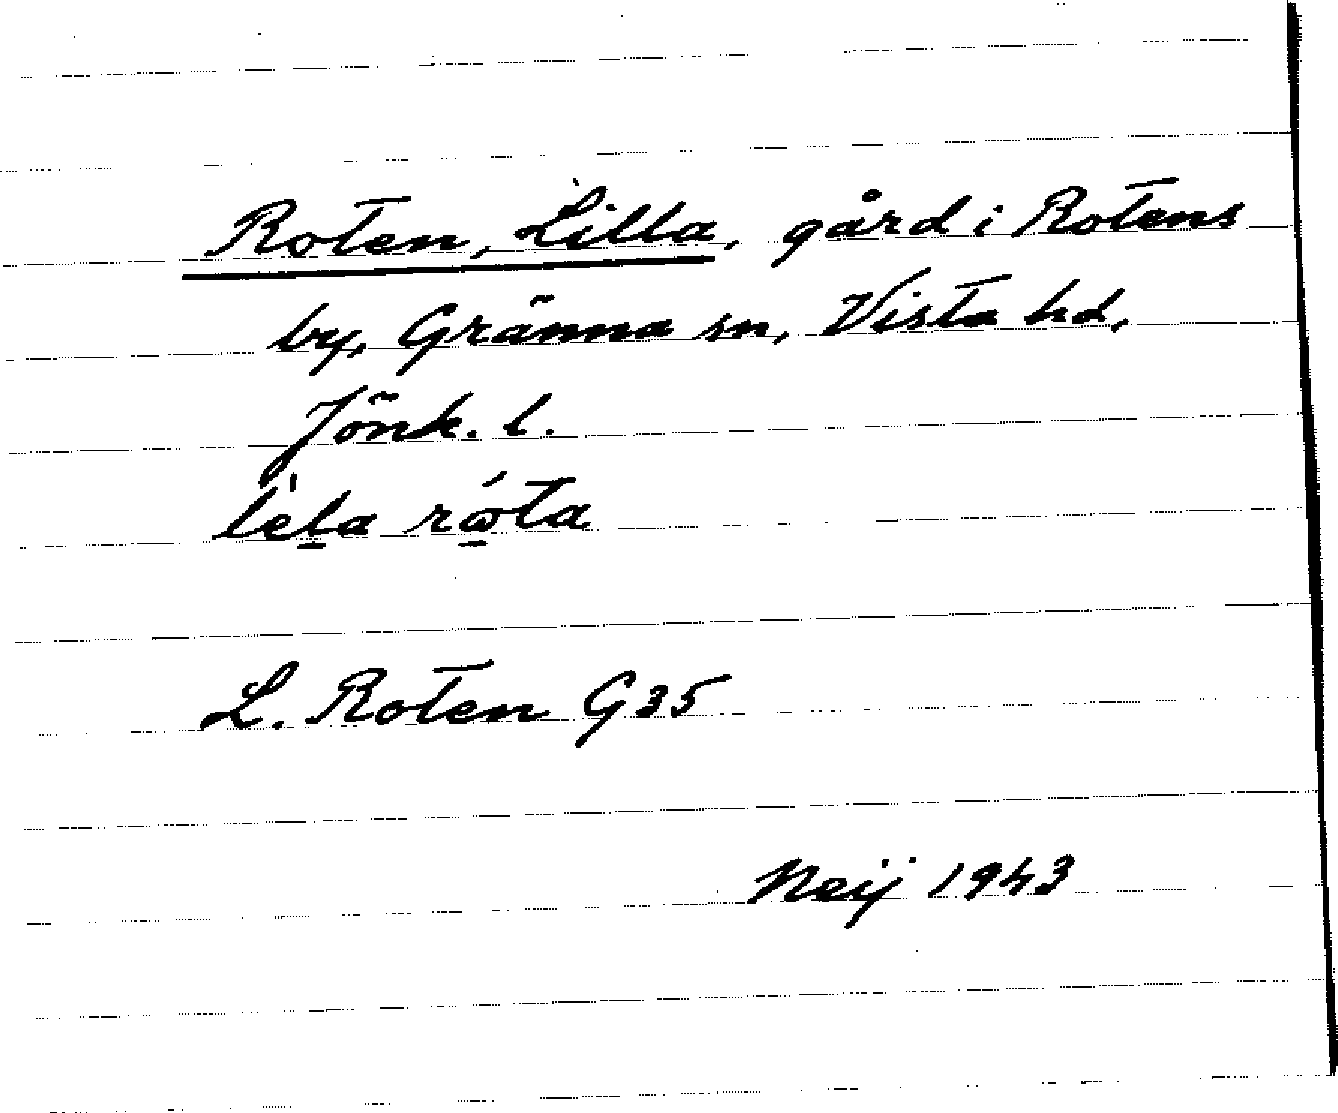 Roten, Lilla, gård i Rotens
by, Gränna sn, Vista hd,
Jönk. l.
lè̱la rώ̱ta
L. Roten G35
Neij 1943